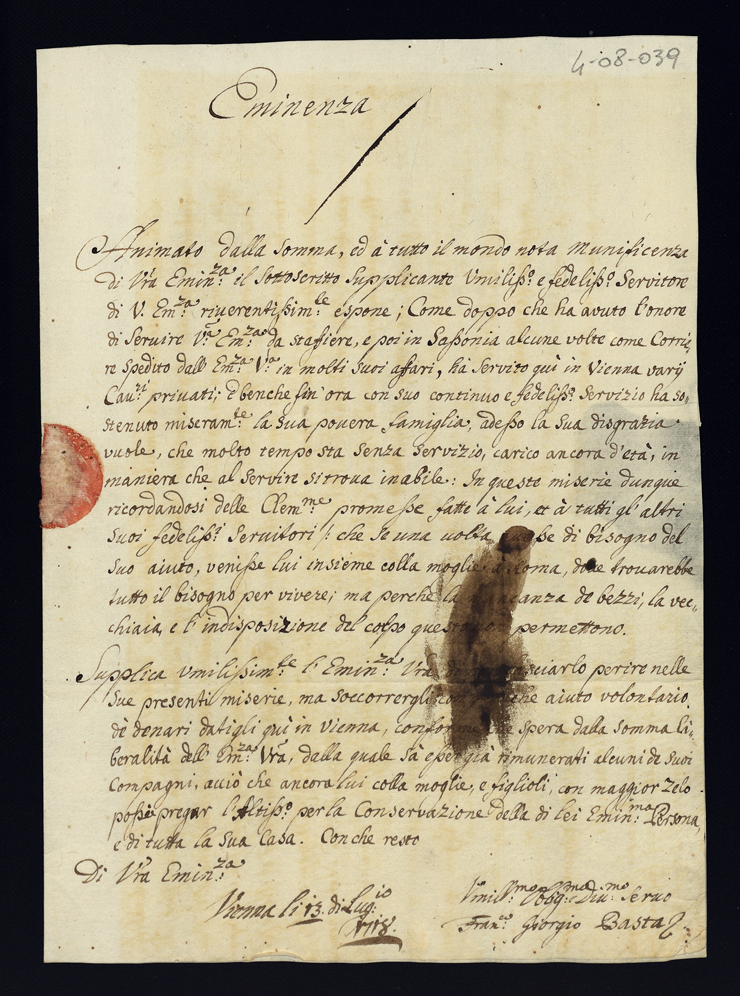 4-08-039
Eminenza
Animato dalla somma, ed à tutto il mondo nota Munificenza
di Vra Emin:za il sottoscritto supplicante Vmiliss:o e fedeliss:o Servitore
di V. Em:za riverentissim:te espone; Come doppo che ha avuto l'onore
di Servire V:a Em:za da staffiere, e poi in Sassonia alcune volte come Corrie-
re spedito dall' Em:za V:a in molti suoi affari, hà servito quì in Vienna varij
Cau:ri privati; e benche fin' ora con suo continuo e fedeliss:o Servizio ha so-
stenuto miseram:te la sua povera famiglia, adesso la sua disgrazia
vuole, che molto tempo sta senza servizio, carico ancora d'età, in
maniera che al servire si trova inabile: In queste miserie dunque
ricordandosi delle Clem:me promesse fatte à lui, et à tutti gl'altri
suoi fedeliss:i servitori /: che se una volta di bisogno del
suo aiuto, venisse lui insieme colla moglie à Roma, dove trovarebbe
tutto il bisogno per vivere; ma perche la de bezzi, la vec-
chiaia, e l'indisposizione del corpo permettono.
Supplica vmilissim:te l'Emin:za Vra perire nelle
sue presenti miserie, ma soccorrergli che aiuto volontario
de denari datigli quì in Vienna, spera dalla somma li-
beralità dell' Em:za Vra, dalla quale sà esser già rimunerati alcuni de suoi
compagni, acciò che ancora lui colla moglie, e figlioli, con maggior zelo
possi pregar l'Altiss:o per la Conservazione della di lei Emin:ma Persona,
e di tutta la sua Casa. Con che resto
Di Vra Emin:za
Vienna li 13. di Lug:io
1718.
Vmill:mo Obbg:mo Div:mo Servo
Fran:co Giorgio Basta